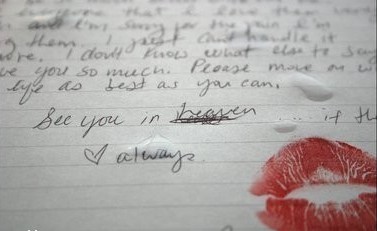 everyone that I love them very
and I'm sorry for the pain I'm
g them. I just can't handle it
ore. I don't know what else to say
ve you so much. Please move on w
life as best as you can.
See you in heaven .... if th
♡ always